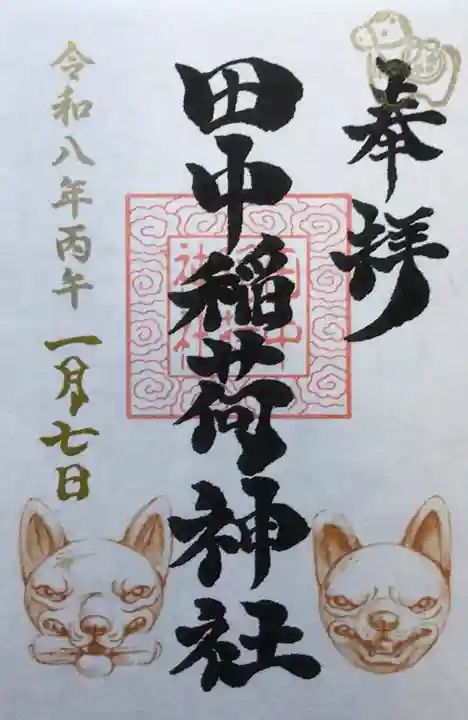 奉拝
田中稲荷神社
令和八年丙午
一月七日